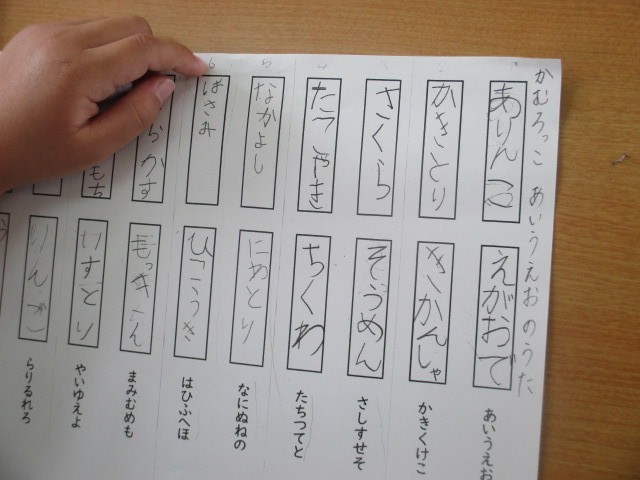 かむろっこ あいうえおのうた
ありんこ
えがおで
あいうえお
かきとり
きかんしゃ
かきくけこ
さくら
そうめん
さしすせそ
たこやき
ちくわ
たちつてと
なかよし
にわとり
なにぬねの
はさみ
ひこうき
はひふへほ
らかす
まみむめも
もち
やいゆえよ
りんご
らりるれろ